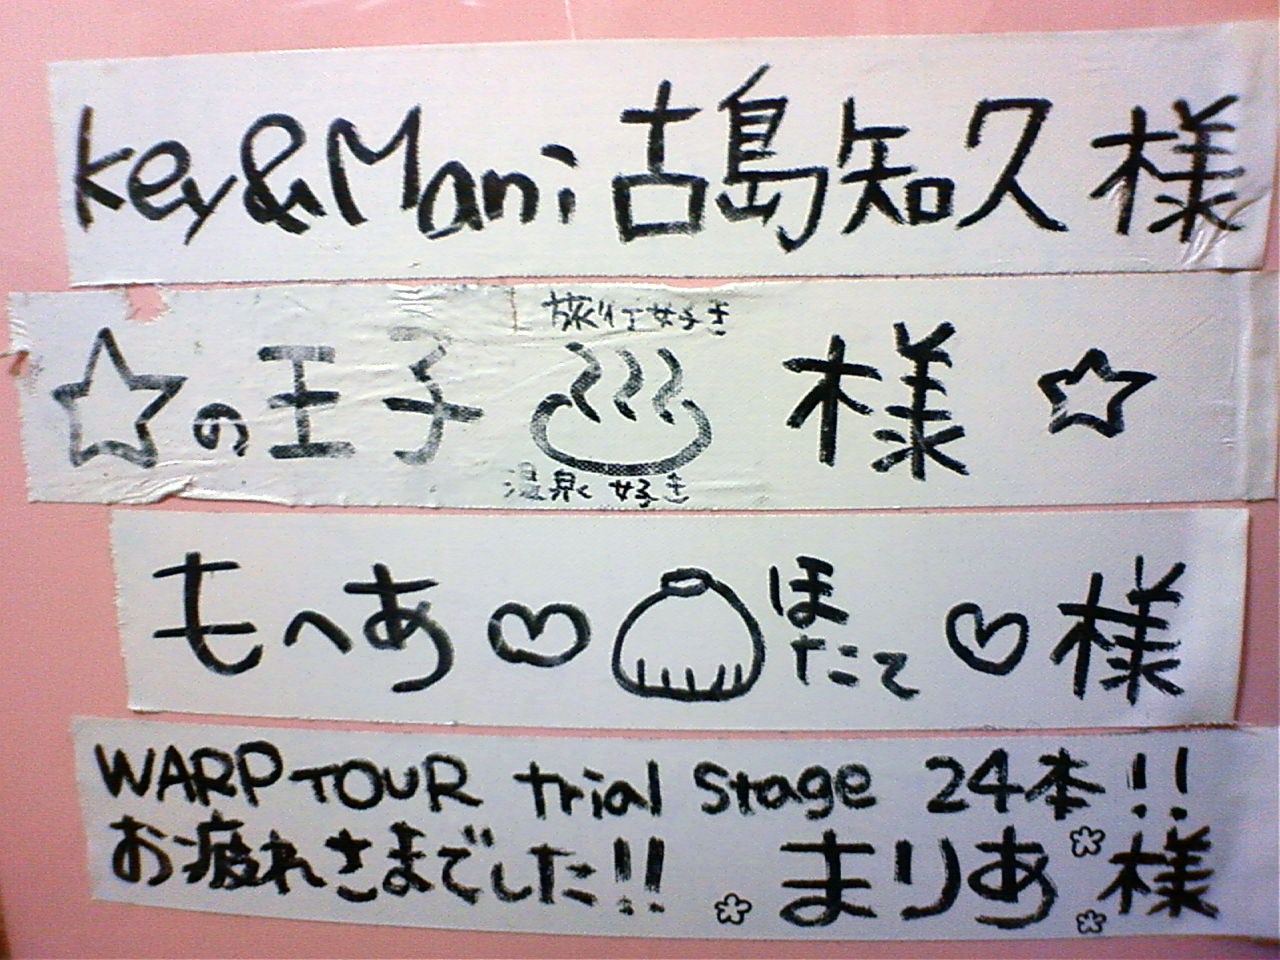 Key&Mani 古島知久 様
旅行好き
☆の王子 ♨ 様 ☆
温泉好き
もへあ ♡ ほたて ♡ 様
WARP TOUR trial stage 24本!!
お疲れさまでした!! まりあ 様